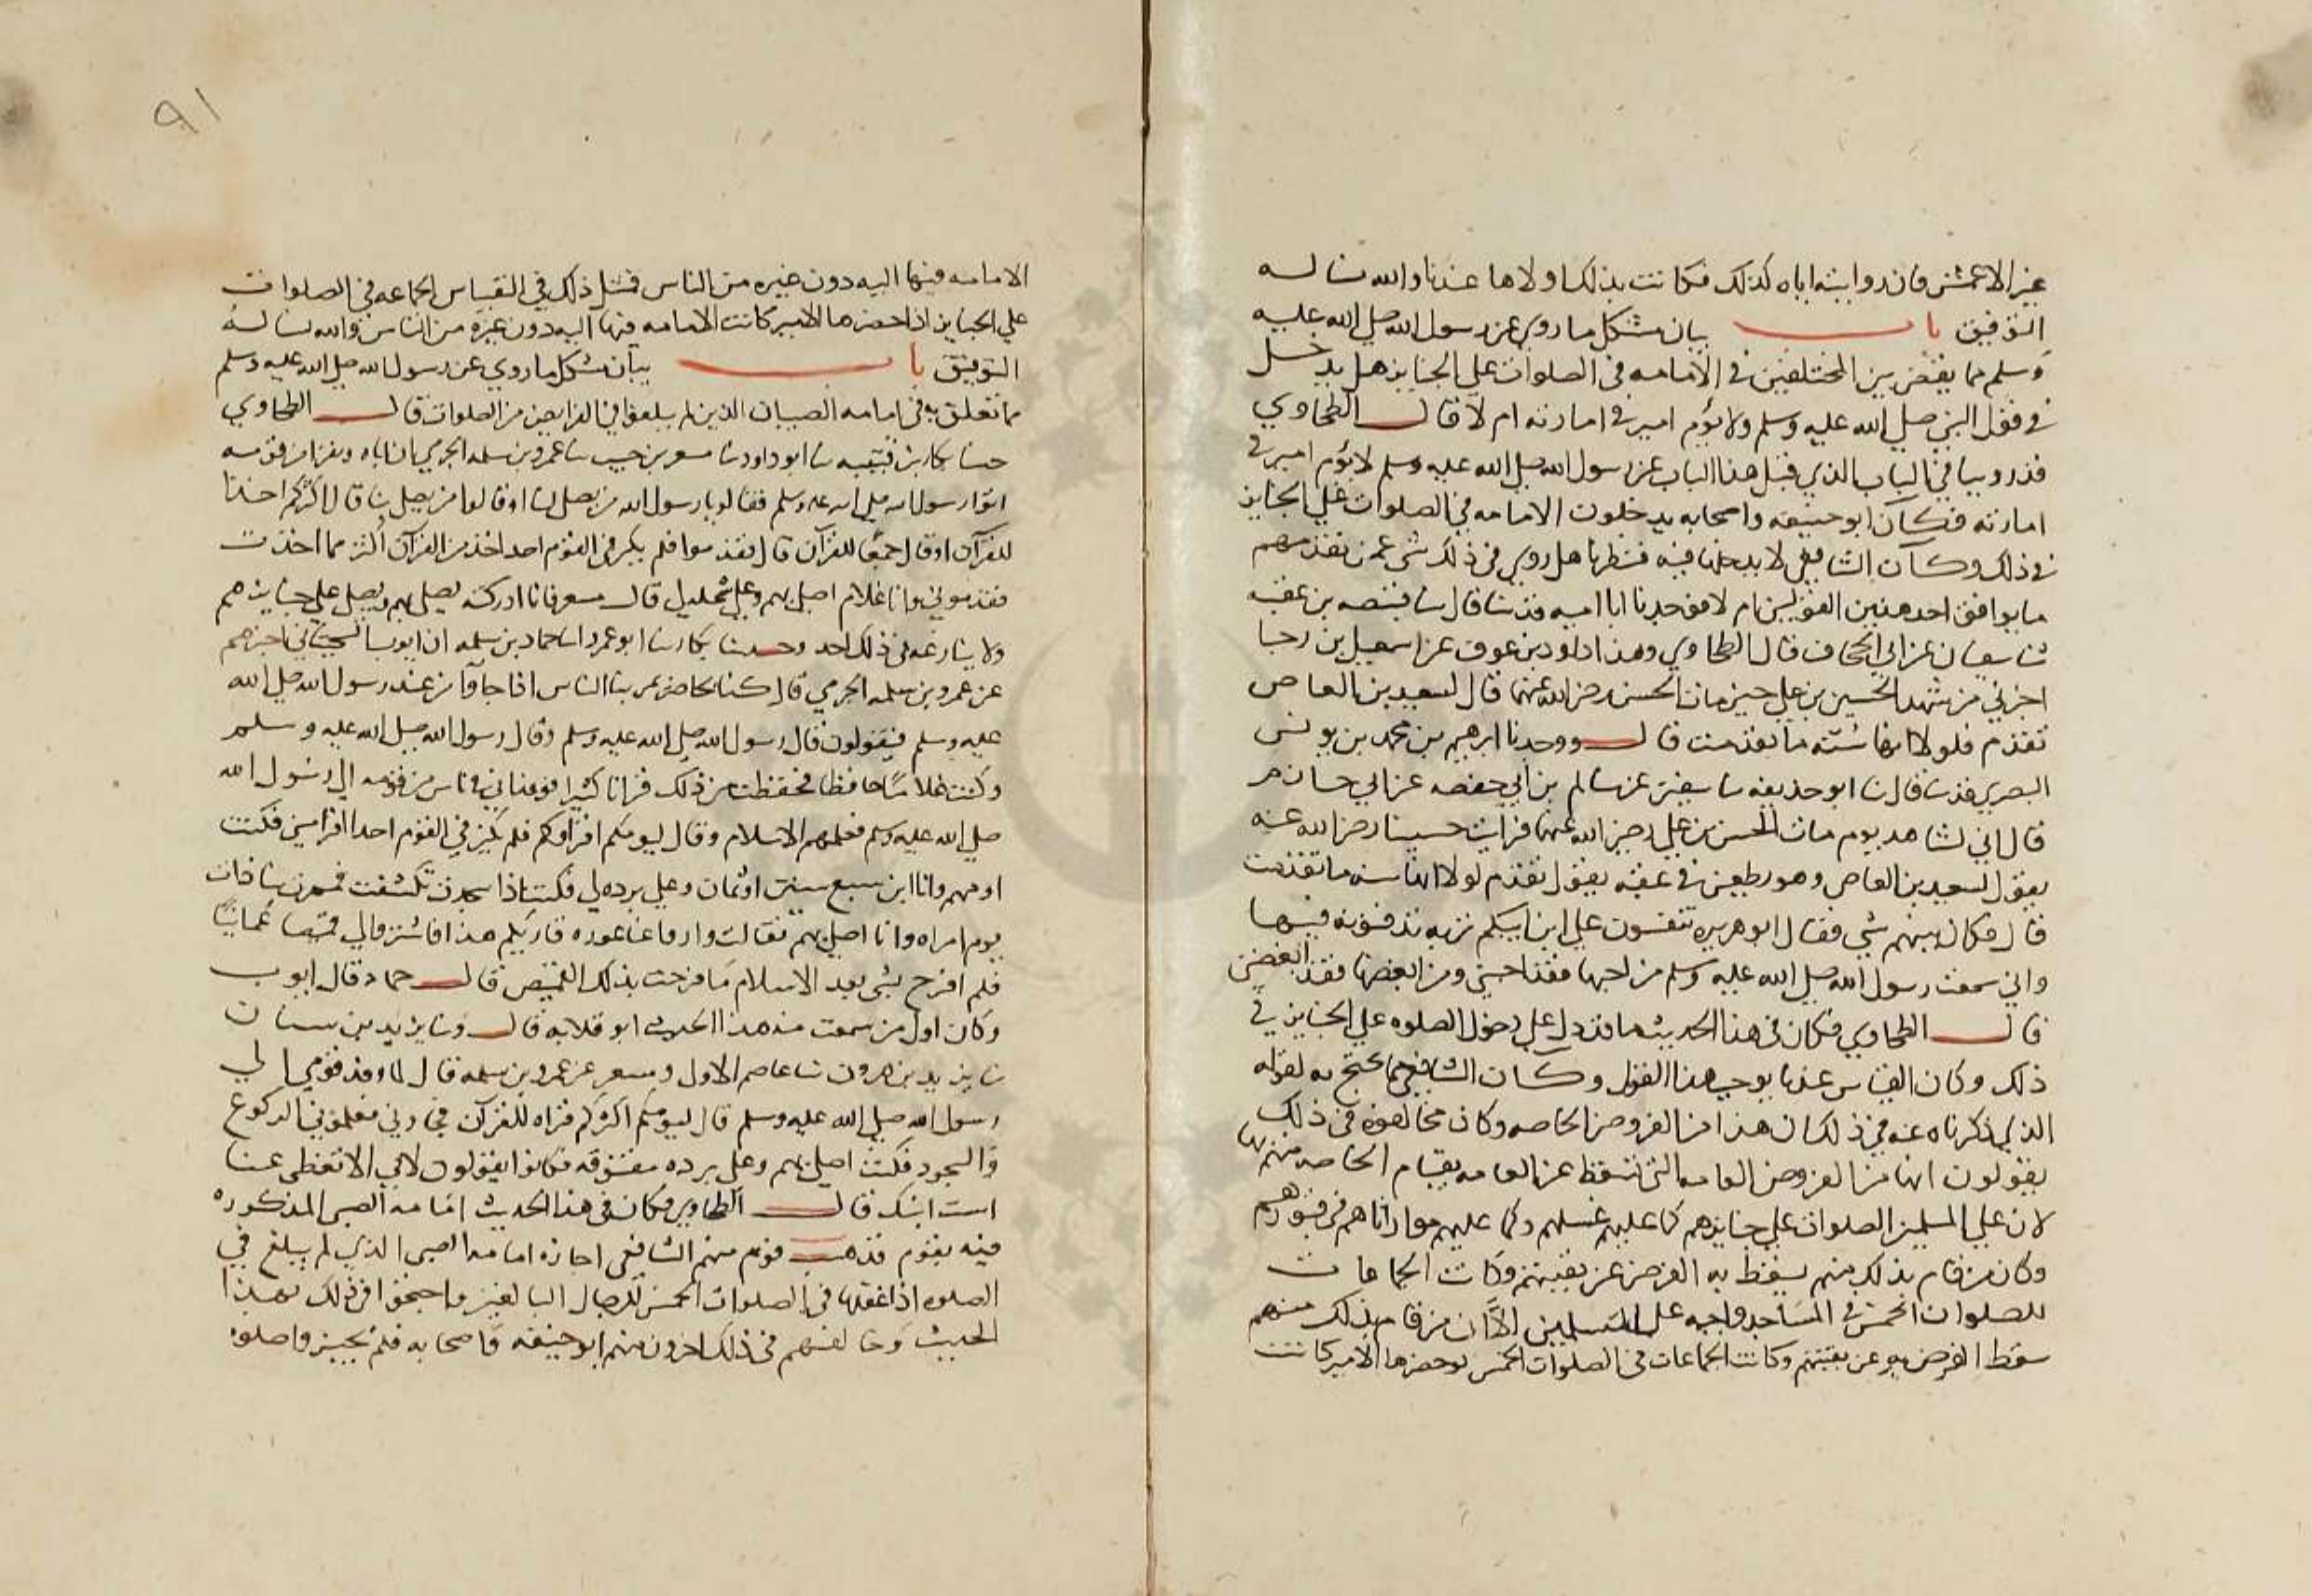 عن الاعمش فان روايته اياه كذلك فكانت بذلك اولاها عندنا والله نساله
التوفيق باب بيان مشكل ما روي عن رسول الله صلى الله عليه
وسلم مما يقضي بين المختلفين في الامامه في الصلوات على الجنايز هل يدخل
في قول النبي صلى الله عليه وسلم ولا يؤم امير في امارته ام لا قال الطحاوي
قد روينا في الباب الذي قبل هذا الباب عن رسول الله صلى الله عليه وسلم لا يؤم امير في
امارته فكان ابو حنيفه واصحابه يدخلون الامامه في الصلوات على الجنايز
في ذلك وكان الشافعي لا يدخلها فيه فنظرنا هل روي في ذلك شي عمن تقدمهم
ما يوافق احد هذين القولين ام لا فوجدنا ابا اميه قد نا قال نا قبيصه بن عقبه
نا سفيان عن ابي الجحاف قال الطحاوي وهذا داود بن عوف عن اسمعيل بن رجا
اخبرني من شهد الحسين بن علي حين مات الحسن رضي الله عنهما قال لسعيد بن العاص
تقدم فلولا انها سنه ما تقدمت قال ووجدنا ابرهيم بن محمد بن يونس
البصري قد نا قال نا ابو حذيفه نا سفين عن سالم بن ابي حفصه عن ابي حازم
قال اني لشاهد يوم مات الحسن بن علي رضي الله عنهما فرايت حسينا رضي الله عنه
يقول لسعيد بن العاص وهو يطعن في عنقه يقول تقدم لولا انها سنه ما تقدمت
قال فكان بينهم شي فقال ابو هريره تنفسون على ابن نبيكم تربه تدفنونه فيها
واني سمعت رسول الله صلى الله عليه وسلم من احبهما فقد احبني ومن ابغضهما فقد ابغضني
قال الطحاوي فكان في هذا الحديث ما قد دل على دخول الصلوه على الجنايز في
ذلك وكان القياس عندنا يوجب هذا القول وكان الشافعي مما يحتج به لقوله
الذي ذكرناه عنه في ذلك ان هذا من الفروض الخاصه وكان مخالفوه في ذلك
يقولون انها من الفروض العامه التي تسقط عن العامه بقيام الخاصه منهم بها
لان على المسلمين الصلوات على جنايزهم كما عليهم غسلهم وكما عليهم مواراتهم في قبورهم
وكان من قام بذلك منهم يسقط به الفرض عن بقيتهم وكانت الجماعات
للصلوات الخمس في المساجد واجبه على المسلمين الا ان من قام بذلك منهم
سقط الفرض به عن بقيتهم وكانت الجماعات في الصلوات الخمس لو حضرها الامير كانت
٩١
الامامه فيها اليه دون غيره من الناس فمثل ذلك في القياس الجماعه في الصلوات
على الجنايز اذا حضرها الامير كانت الامامه فيها اليه دون غيره من الناس والله نساله
التوفيق باب بيان مشكل ما روي عن رسول الله صلى الله عليه وسلم
مما تعلق به في امامه الصبيان الذين لم يبلغوا في الفرايض من الصلوات قال الطحاوي
حدثنا بكار بن قتيبه نا ابو داود نا مسعر بن حبيب نا عمرو بن سلمه الجرمي ان اباه ونفرا من قومه
اتوا رسول الله صلى الله عليه وسلم فقالوا يا رسول الله من يصلي لنا او قالوا من يصلي بنا قال اكثركم اخذا
للقرآن او قال جمعا للقرآن قال فقدموا فلم يكن في القوم احد اخذ من القرآن اكثر مما اخذت
فقدموني وانا غلام اصلي بهم وعلي شمله لي قال مسعر فانا ادركته يصلي بهم ويصلي على جنايزهم
ولا ينازعه في ذلك احد وحدثنا بكار نا ابو عمر انا حماد بن سلمه ان ايوب السختياني اخبرهم
عن عمرو بن سلمه الجرمي قال كنا بحاضر يمر بنا الناس اذا جاؤا من عند رسول الله صلى الله
عليه وسلم فيقولون قال رسول الله صلى الله عليه وسلم وقال رسول الله صلى الله عليه وسلم
وكنت غلاما حافظا فحفظت من ذلك قرانا كثيرا فوفد ابي في ناس من قومه الى رسول الله
صلى الله عليه وسلم فعلمهم الاسلام وقال ليؤمكم اقراوكم فلم يكن في القوم احدا اقرا مني فكنت
اومهم وانا ابن سبع سنين او ثمان وعلي برده لي فكنت اذا سجدت تكشفت فمرت بنا ذات
يوم امراه وانا اصلي بهم فقالت واروا عنا عوره قاريكم هذا فاشتروا لي قميصا عمانيا
فلم افرح بشي بعد الاسلام ما فرحت بذلك القميص قال حماد قال ايوب
وكان اول من سمعت منه هذا الحديث ابو قلابه قال ونا يزيد بن سنان
نا يزيد بن هرون نا عاصم الاول ومسعر عن عمرو بن سلمه قال لما وفد قومي الى
رسول الله صلى الله عليه وسلم قال ليؤمكم اكثركم قراه للقرآن فجاوني فعلموني الركوع
والسجود فكنت اصلي بهم وعلي برده مفتوقه فكانوا يقولون لابي الا تغطي عنا
است ابنك قال الطحاوي فكان في هذا الحديث امامه الصبي المذكوره
فيه بقوم فذهب قوم منهم الشافعي اجازه امامه الصبي الذي لم يبلغ في
الصلوه اذا عقلها في الصلوات الخمس للرجال البالغين واحتجوا في ذلك بهذا
الحديث وخالفهم في ذلك اخرون منهم ابو حنيفه واصحابه فلم يجيزوا صلوه